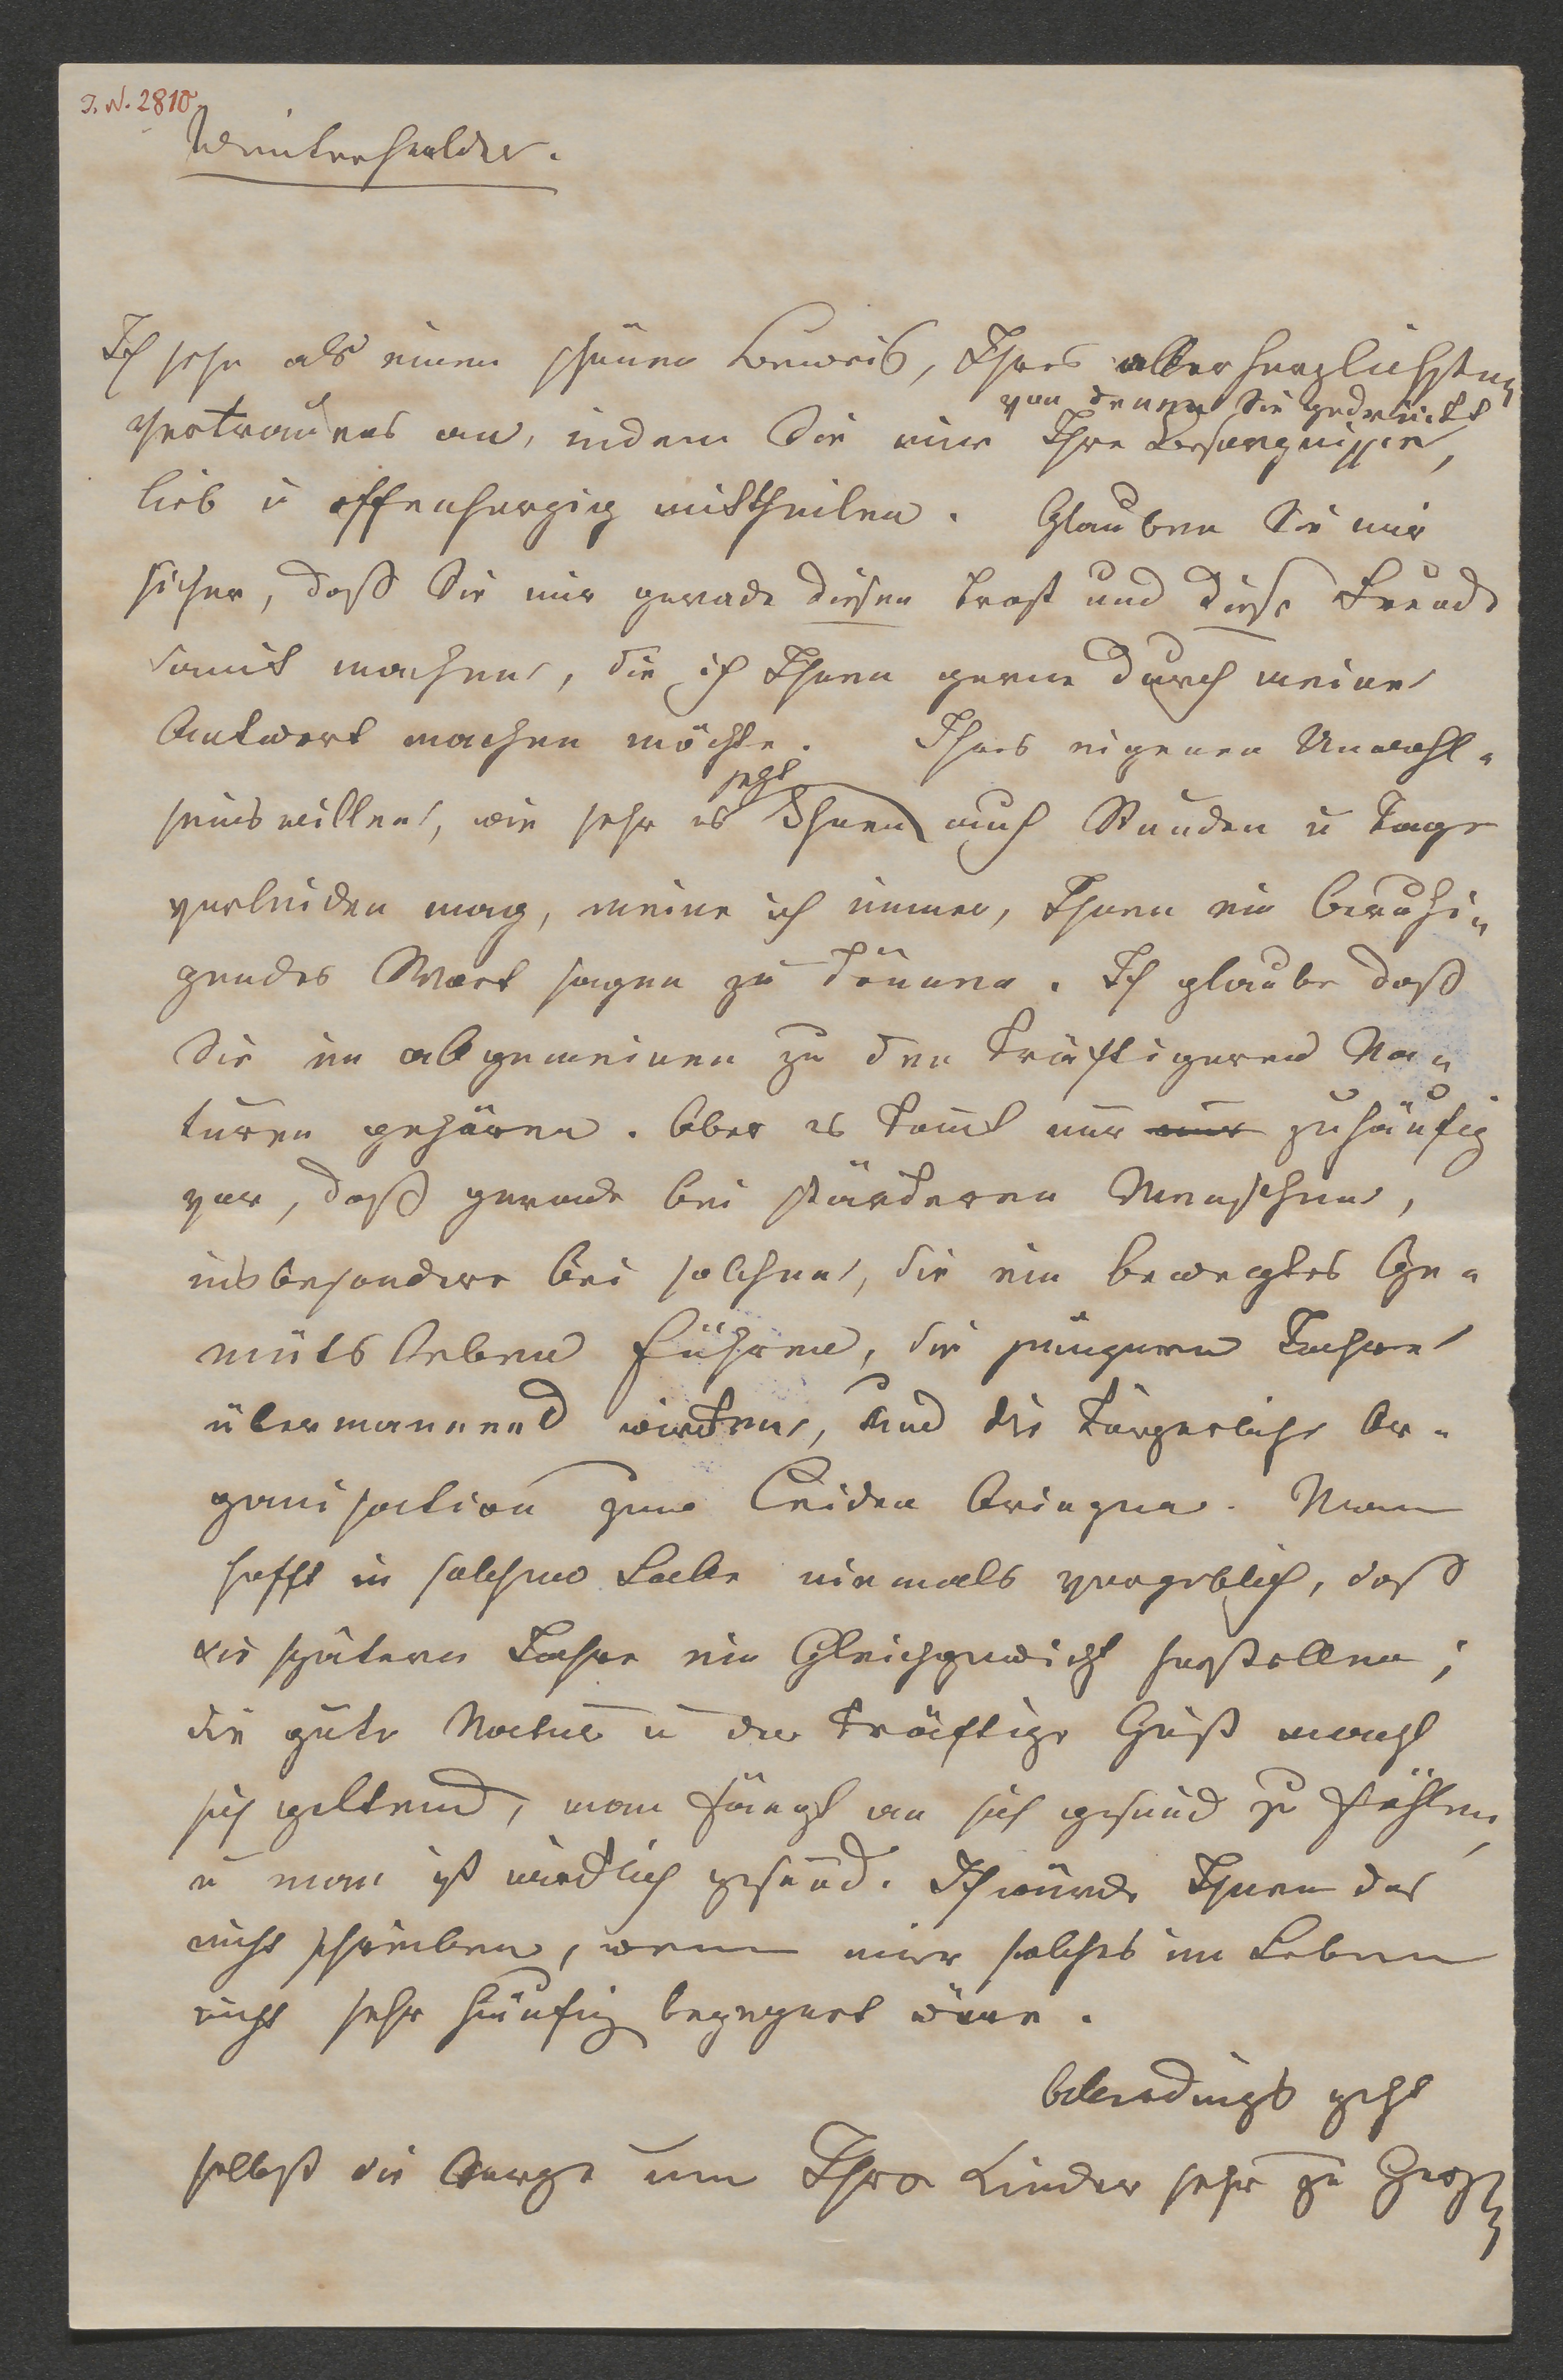 I. N. 2810
Winterhalder.
Ich sehe als einen schönen Beweis, Ihres allerherzlichsten
von denen Sie gedrückt
Vertrauens an, indem Sie mir Ihre Besorgnisse,
lieb u offenherzig mittheilen. Glauben Sie mir
sicher, daß Sie mir gerade diesen Trost und diese Freude
damit machen, die ich Ihnen gerne durch meine
Antwort machen möchte. Ihres eigenen Unwohl-
jetzt
seins willen, wie sehr es Ihnen auch Stunden u Tage
verleiden mag, meine ich immer, Ihnen ein beruhi-
gendes Wort sagen zu können. Ich glaube daß
Sie im allgemeinen zu den kräftigeren Na-
turen gehören. Aber es kommt nur nur zu häufig
vor, daß gerade bei stärkeren Menschen,
insbesondere bei solchen, die ein bewegtes Ge-
müts Leben führen, die jüngeren Jahre
übermannend wirken, und die körperliche Or-
ganisation zum Leiden bringen. Man
hofft in solchem Falle niemals vergeblich, daß
die spätern Jahre ein Gleichgewicht herstellen;
die gute Natur u der kräftige Guß macht
sich geltend, man fängt an sich gesund zu fühlen,
u man ist wirklich gesund. Ich würde Ihnen das
nicht schreiben, wenn mir solches im Leben
nicht sehr häufig begegnet wäre.
Allerdings geht
selbst die Sorge um Ihre Kinder sehr zu Herzen